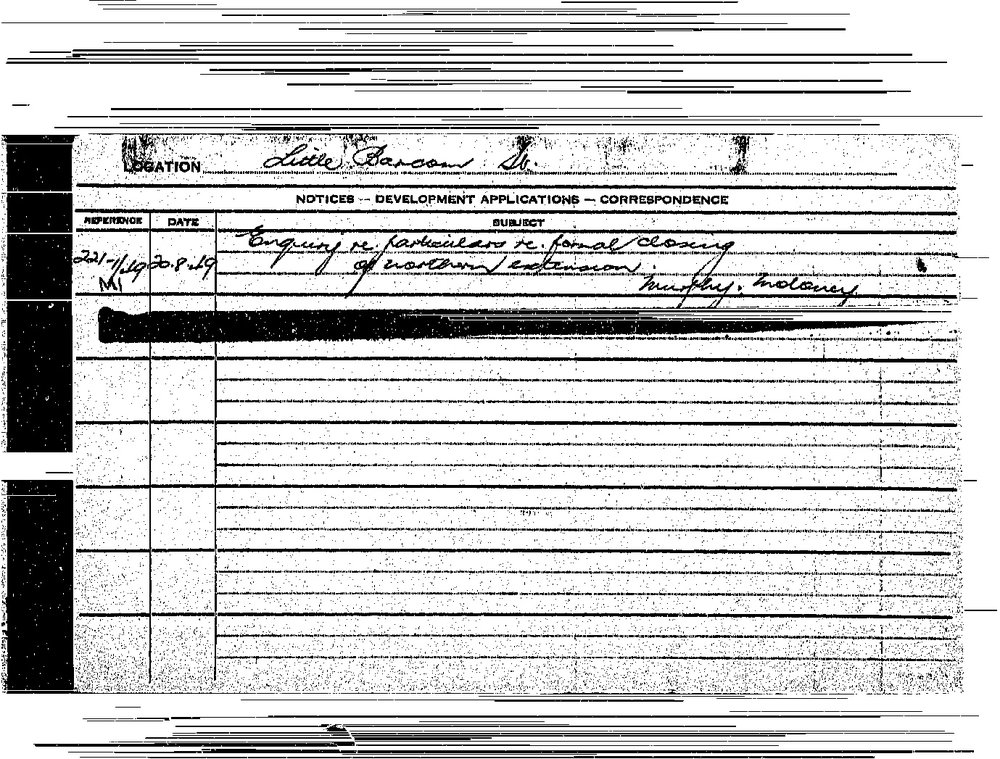 LOCATION Little Barcom St.
NOTICES — DEVELOPMENT APPLICATIONS — CORRESPONDENCE
REFERENCE DATE SUBJECT
Enquiry re particulars re. formal closing
221-1/49 20.8.49 of northern extension.
M1 Murphy. Moloney.